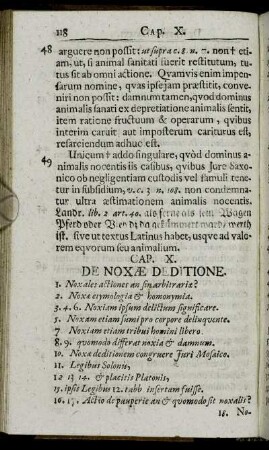 118 CAP. X.
48 arguere non possit: ut supra c. 8. n. 7. non † eti-
am, ut, si animal sanitati fuerit restitutum, tu-
tus sit ab omni actione. Quamvis enim impen-
sarum nomine, quas ipse jam præstitit, conve-
niri non possit: damnum tamen, qvod dominus
animalis sanati ex depretiatione animalis sentit,
item ratione fructuum & operarum, qvibus
interim caruit aut imposterum cariturus est,
resarciendum adhuc est.
49 Unicum † addo singulare, qvòd dominus a-
nimalis nocentis iis casibus, qvibus Jure Saxo-
nico ob negligentiam custodis vel famuli tene-
tur in subsidium, v. c. 3. n. 108. non condemna-
tur ultra æstimationem animalis nocentis.
Landr. lib. 2. art. 40. als ferne als sein Wagen
Pferd oder
ist. sive ut textus Latinus habet, usqve ad va-
lorem eqvorum seu animalium.
CAP. X.
DE NOXÆ DEDITIONE.
1. Noxales actiones an sint arbitrariæ?
2. Noxa etymologia & homonymia.
3. 4. 6. Noxiam ipsum delictum significare.
5. Noxam etiam sumi pro corpore delinquente.
7. Noxiam etiam tribui homini libero.
8. 9. quomodo differat noxia & damnum.
10. Noxæ deditionem congruere Juri Mosaico.
11. Legibus Solonis,
12. 13. 14. & placitis Platonis,
15. ipsis Legibus 12. tabb. insertam fuisse.
16. 17. Actio de pauperie an & quomodo sit noxalis?
18. No-